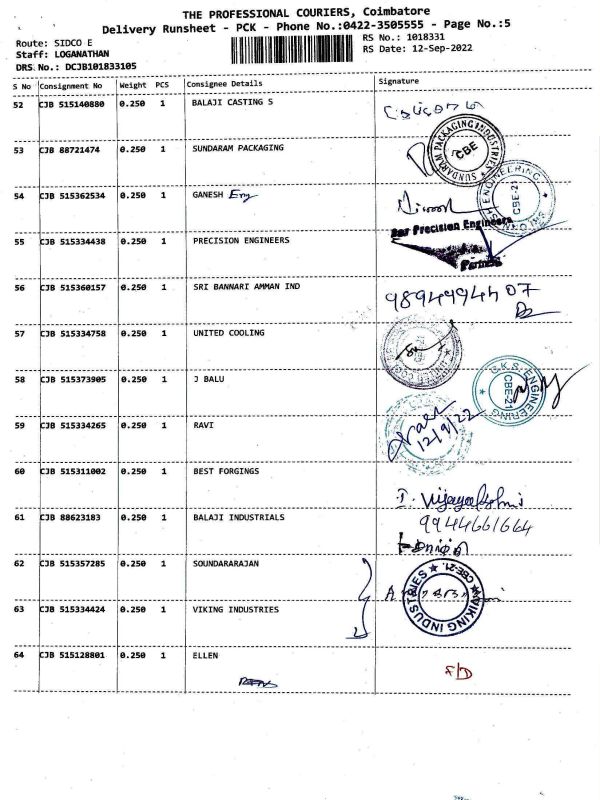 THE PROFESSIONAL COURIERS, Coimbatore
Delivery Runsheet - PCK - Phone No.:0422-3505555 - Page No.:5
Route: SIDCO E
RS No.: 1018331
Staff: LOGANATHAN
RS Date: 12-Sep-2022
DRS No.: DCJB101833105
S No Consignment No Weight PCS Consignee Details Signature
52 CJB 515140880 0.250 1 BALAJI CASTING S
53 CJB 88721474 0.250 1 SUNDARAM PACKAGING
SUNDARAM PACKAGING INDUSTRIES * CBE
54 CJB 515362534 0.250 1 GANESH Eng
ENGINEERING CBE-21
For Precision Engineers
55 CJB 515334438 0.250 1 PRECISION ENGINEERS
Partner
56 CJB 515360157 0.250 1 SRI BANNARI AMMAN IND
9894494407
57 CJB 515334758 0.250 1 UNITED COOLING
58 CJB 515373905 0.250 1 J BALU
C.K.S. ENGINEERING CBE-21
59 CJB 515334265 0.250 1 RAVI
12/9/22
60 CJB 515311002 0.250 1 BEST FORGINGS
I. Vijayalakshmi
61 CJB 88623183 0.250 1 BALAJI INDUSTRIALS
9944661664
62 CJB 515357285 0.250 1 SOUNDARARAJAN
63 CJB 515334424 0.250 1 VIKING INDUSTRIES
VIKING INDUSTRIES * CBE-21. *
64 CJB 515128801 0.250 1 ELLEN
F/D